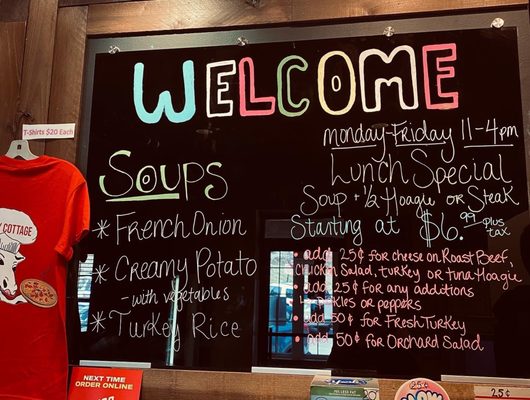 WELCOME
T-Shirts $20 Each
Monday-Friday 11-4pm
Lunch Special
Soup + ½ Hoagie or Steak
Starting at $6.99 plus tax
• add 25¢ for cheese on Roast Beef,
Chicken Salad, turkey or tuna Hoagie
• add 25¢ for any additions
pickles or peppers
• add 50¢ for Fresh Turkey
• add 50¢ for Orchard Salad
Soups
* French Onion
* Creamy Potato
- with vegetables
* Turkey Rice
COTTAGE
NEXT TIME
ORDER ONLINE
25¢
25¢